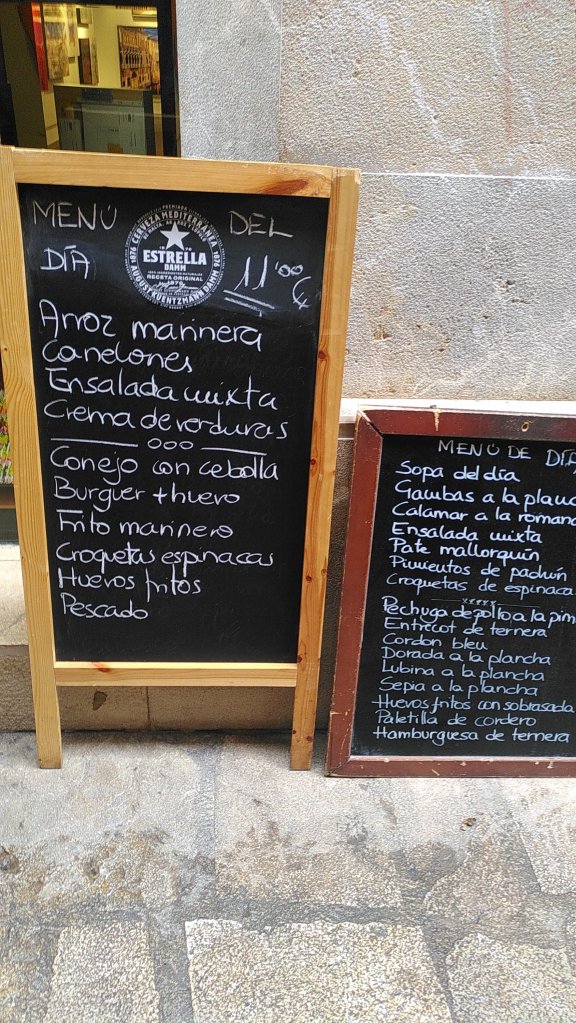 MENÚ DEL
DÍA 11'00 €
CERVEZA MEDITERRÁNEA
ESTRELLA
DAMM
RECETA ORIGINAL
1876
1876
AUGUST KUENTZMANN DAMM
Arroz marinera
Canelones
Ensalada mixta
Crema de verduras
Conejo con cebolla
Burguer + huevo
Frito marinero
Croquetas espinacas
Huevos fritos
Pescado
MENÚ DE DÍA
Sopa del día
Gambas a la planc
Calamar a la romana
Ensalada mixta
Pate mallorquín
Pimientos de padrón
Croquetas de espinaca
Pechuga de pollo a la pim
Entrecot de ternera
Cordon bleu
Dorada a la plancha
Lubina a la plancha
Sepia a la plancha
Huevos fritos con sobrasada
Paletilla de cordero
Hamburguesa de ternera